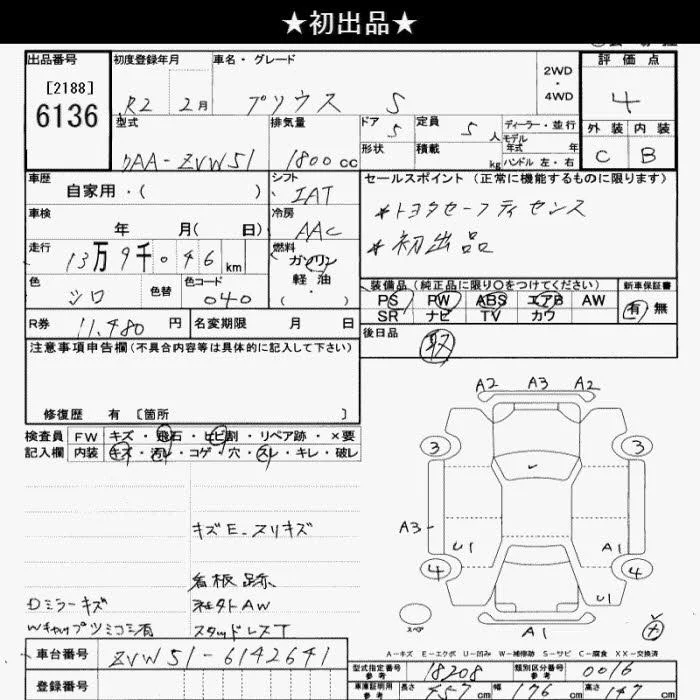 ★初出品★
出品番号 初度登録年月 車名・グレード 2WD・4WD 評価点
[2188]
6136
R2 2月 プリウス S 4
型式 排気量 ドア 定員 ディーラー・並行 外装 内装
5 5人 モデル年式 年
形状 積載 kg ハンドル 左・右
DAA-ZVW51 1800cc C B
車歴 シフト セールスポイント（正常に機能するものに限ります）
自家用・( ) IAT
*トヨタセーフティセンス
車検 冷房
年 月( 日) AAC
*初出品
走行 燃料
13万9千046km ガソリン
軽油
( ・ )
色 色替 色コード
シロ 040
装備品（純正品に限り○をつけてください） 新車保証書
PS PW ABS エアB AW 有 無
SR ナビ TV カワ
R券 11,480円 名変期限 月 日
後日品 取
注意事項申告欄（不具合内容等は具体的に記入して下さい）
修復歴 有 〔箇所 〕
検査員 FW キズ・飛石・ヒビ割・リペア跡・×要
記入欄 内装 キズ・汚レ・コゲ・穴・スレ・キレ・破レ
A2 A3 A2
3 3
A3
U1 A1
4 4
U1
スペア
A1
キズE-スリキズ
看板跡
Dミラーキズ 社外AW
Wキャップツミコミ有 スタッドレスT
A-キズ E-エクボ U-凹み W-補修跡 S-サビ C-腐食 XX-交換済
車台番号 ZVW51-6142641
登録番号
型式指定番号 参考 18208 類別区分番号 参考 0016
車庫証明用 参考 長さ 457cm 幅 176cm 高さ 147cm